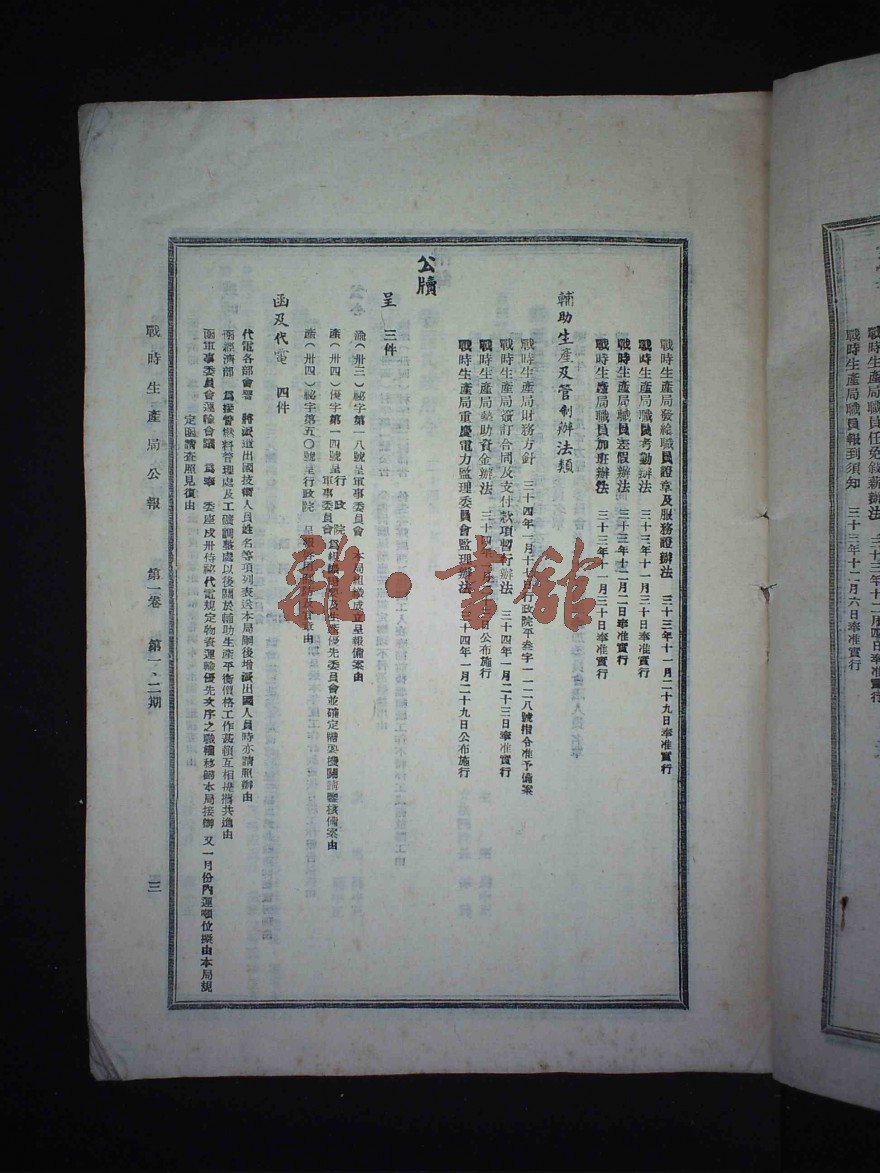 戰時生產局職員任免敍薪辦法　三十三年十二月四日奉准實行
戰時生產局職員報到須知　三十三年十二月六日奉准實行
戰時生產局發給職員證章及服務證辦法　三十三年十一月二十九日奉准實行
戰時生產局職員考勤辦法　三十三年十一月三十日奉准實行
戰時生產局職員差假辦法　三十三年十二月二日奉准實行
戰時生產局職員加班辦法　三十三年十一月三十日奉准實行
輔助生產及管制辦法類
戰時生產局財務方針　三十四年一月十七日行政院平叁字一一二八號指令准予備案
戰時生產局簽訂合同及支付款項暫行辦法　三十四年一月二十三日奉准實行
戰時生產局獎助資金辦法　三十四年一月日公布施行
戰時生產局重慶電力監理委員會監理辦法　三十四年一月二十九日公布施行
公牘
呈　三件
渝(卅三)祕字第一八號呈軍事委員會　本局組織成立呈報備案由
產(卅四)優字第一四號呈行政院軍事委員會為組織運輸及生產優先委員會並確定機關請鑒核備案由
產(卅四)祕字第五〇號呈行政院　呈報啓用關防及會章由
函及代電　四件
代電各部會署　將派遣出國技術人員姓名等項列表送本局嗣後增派出國人員時亦請照辦由
函經濟部　為接管燃料管理處及工礦調整處以後關於輔助生產平衡價格工作甚賴互相提攜共進由
函軍事委員會運輸會議　為奉　委座戍卅侍祕代電規定物資運輸優先次序之職權移歸本局接辦　又一月份內運噸位擬由本局規
定函請查照見復由
戰時生產局公報　第一卷　第一、二期　三
雜·書館